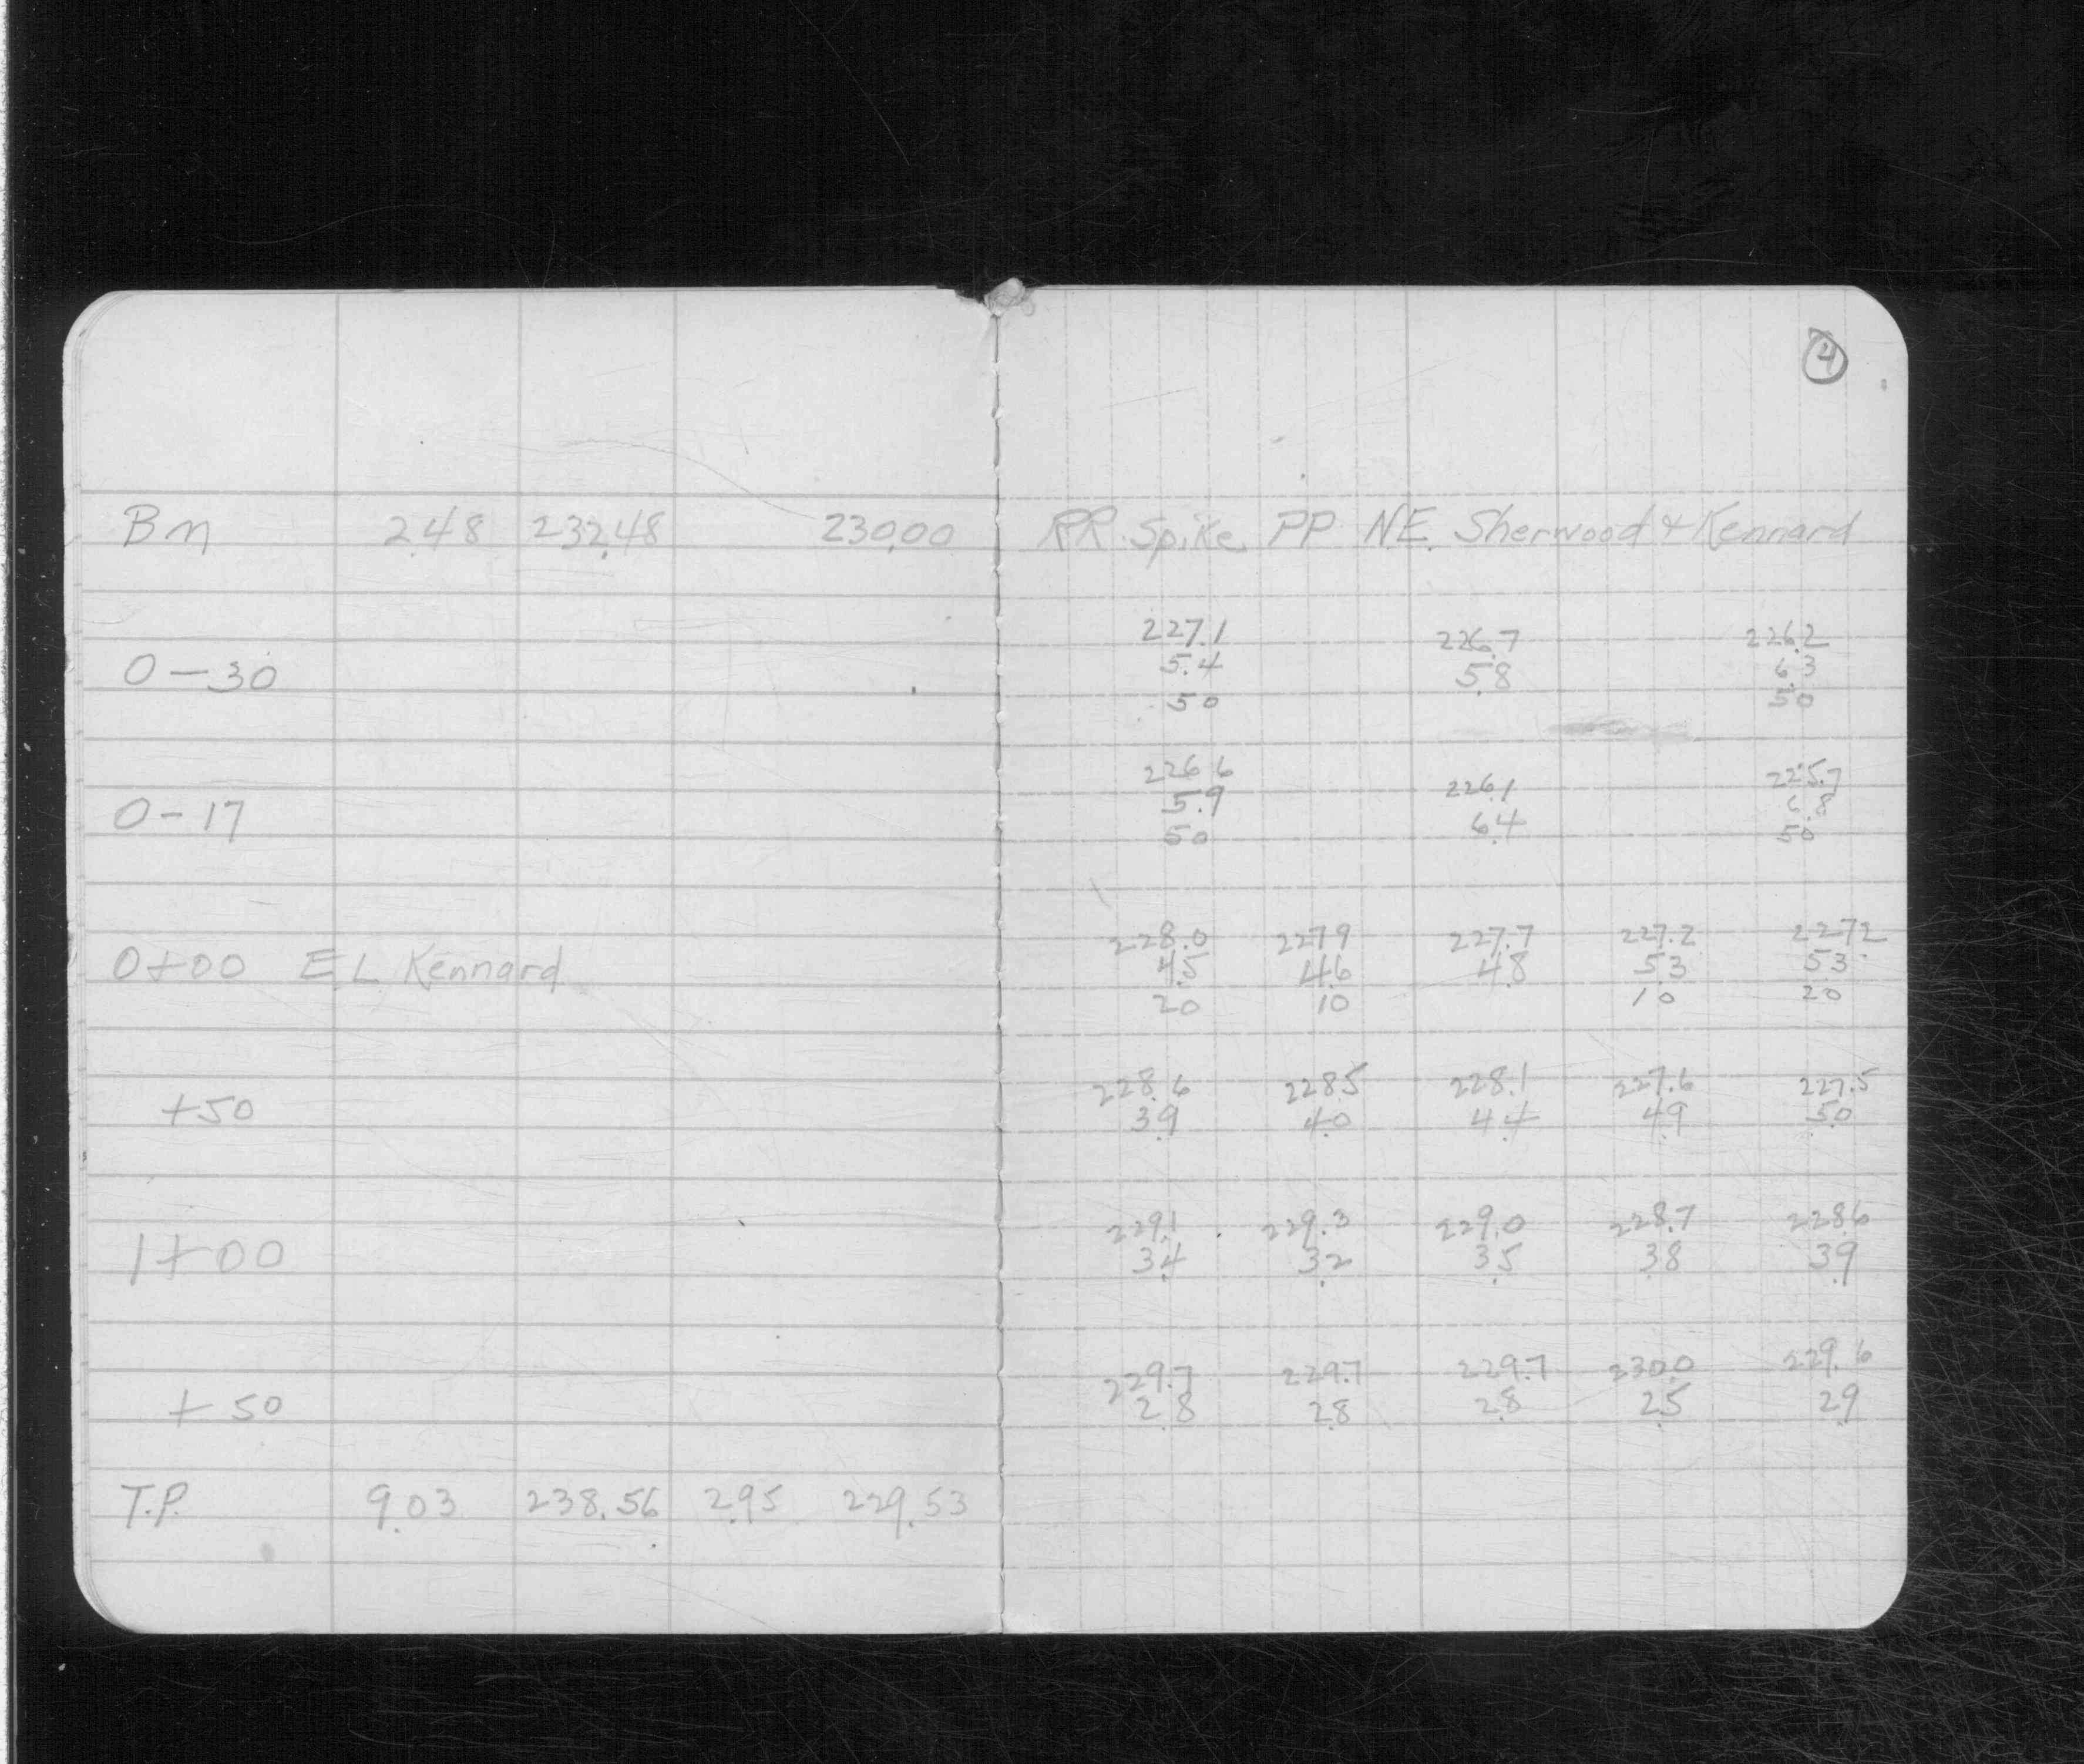 4
BM 2.48 232.48 230.00 RR Spike PP N.E. Sherwood & Kennard
227.1 226.7 226.2
0-30 5.4 5.8 6.3
50 50
226.6 226.1 225.7
0-17 5.9 6.4 6.8
50 50
228.0 227.9 227.7 227.2 227.2
0+00 E L Kennard 4.5 4.6 4.8 5.3 5.3
20 10 10 20
228.6 228.5 228.1 227.6 227.5
+50 3.9 4.0 4.4 4.9 5.0
229.1 229.3 229.0 228.7 228.6
1+00 3.4 3.2 3.5 3.8 3.9
229.7 229.7 229.7 230.0 229.6
+50 2.8 2.8 2.8 2.5 2.9
T.P. 9.03 238.56 2.95 229.53